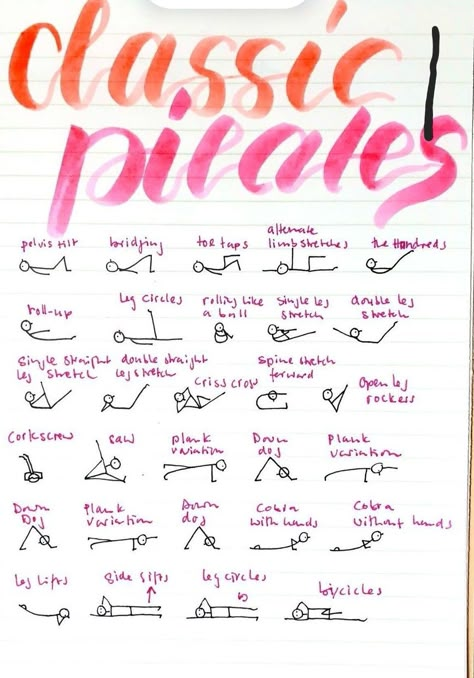 classic
pilates
pelvis tilt bridging toe taps alternate limb stretches the hundreds
roll-up leg circles rolling like a ball single leg stretch double leg stretch
single straight leg stretch double straight leg stretch criss cross spine stretch forward open leg rockers
corkscrew saw plank variation Down dog Plank variation
Down Dog Plank variation Down dog Cobra with hands Cobra without hands
leg lifts side lifts leg circles bicicles